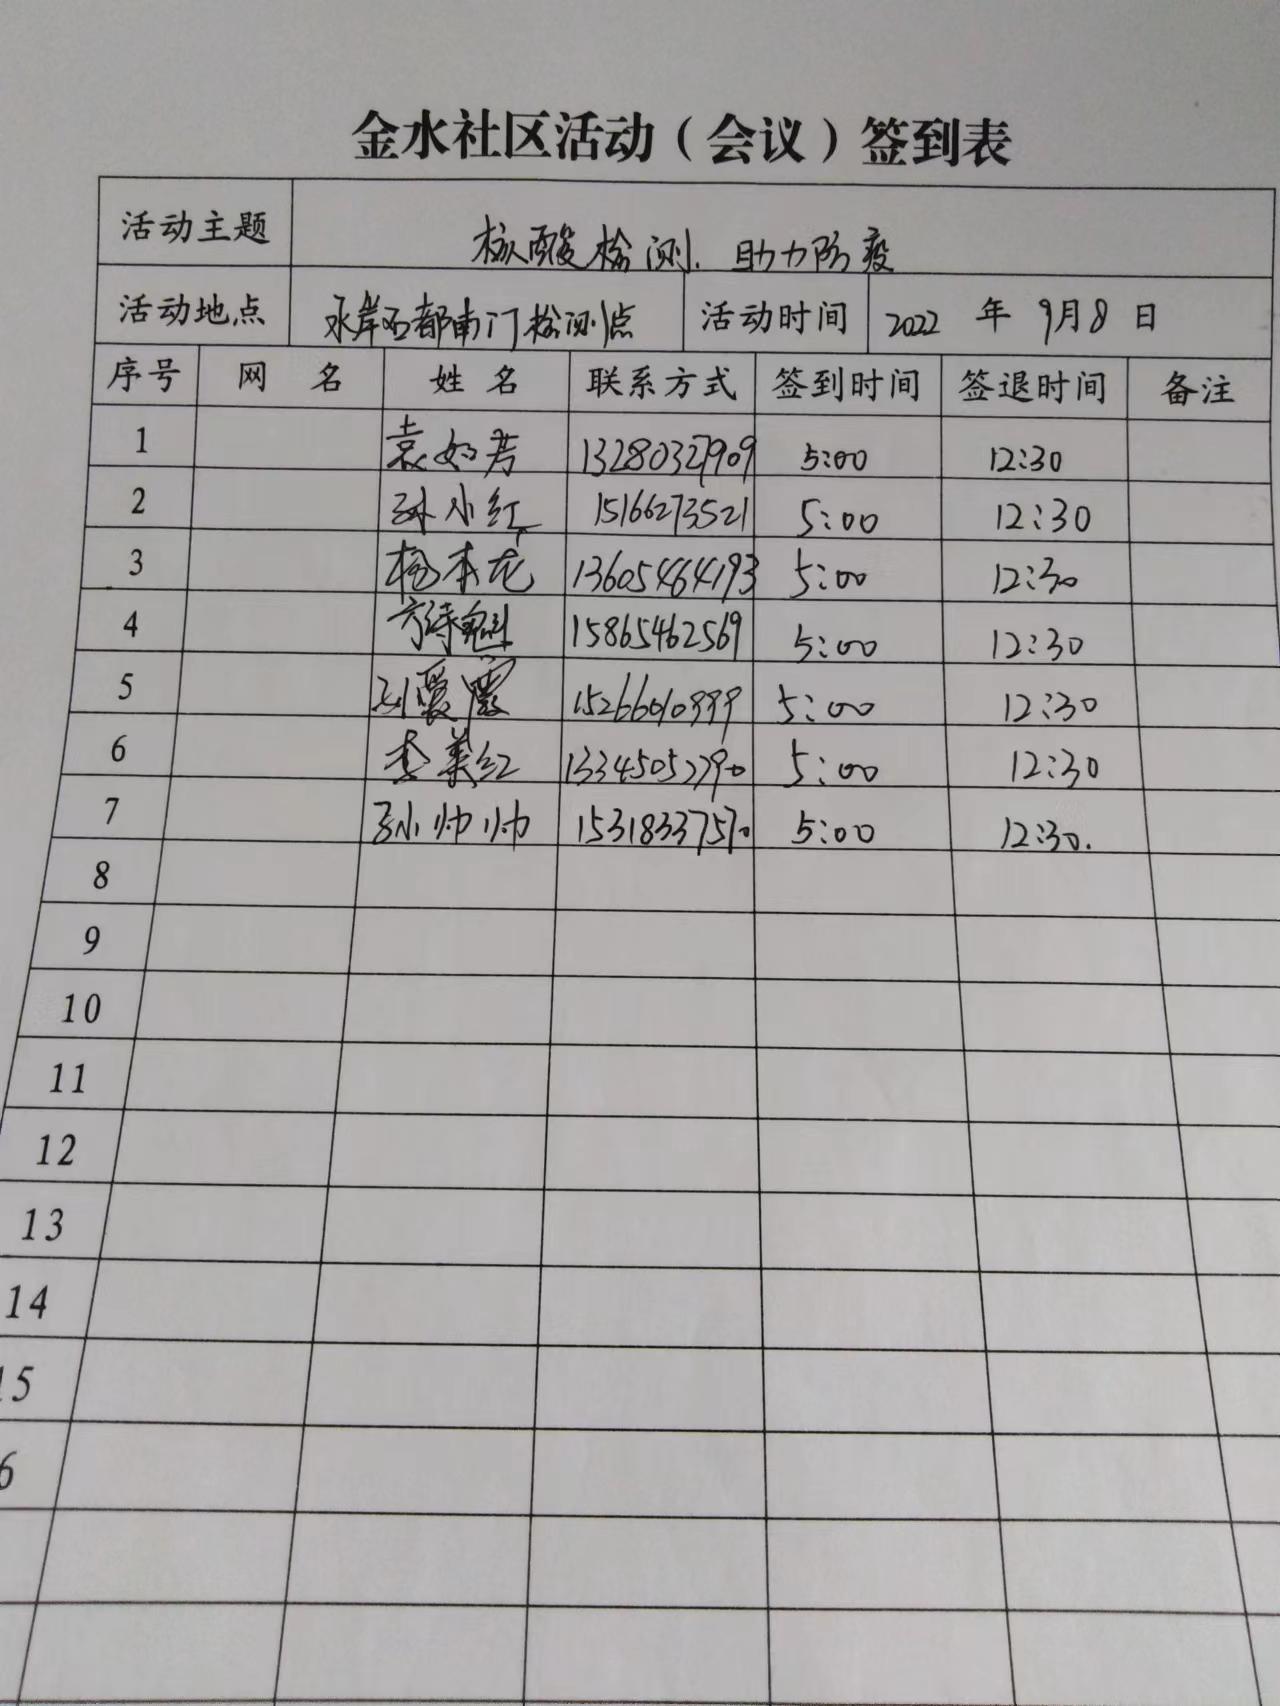 金水社区活动（会议）签到表
活动主题 核酸检测.助力防疫
活动地点 水岸名都南门检测点 活动时间 2022 年 9月8日
序号 网 名 姓 名 联系方式 签到时间 签退时间 备注
1 袁如芳 13280327909 5:00 12:30
2 孙小红 15166273521 5:00 12:30
3 杨本龙 13605464193 5:00 12:30
4 15865462569 5:00 12:30
5 刘爱霞 15266010999 5:00 12:30
6 李美红 13345052790 5:00 12:30
7 孙帅帅 15318337570 5:00 12:30.
8
9
10
11
12
13
14
15
6